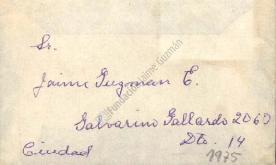 Sr.
Jaime Guzman E.
Galvarino Gallardo 2063
Dto. 14
Ciudad
1975
Fundación Jaime Guzmán